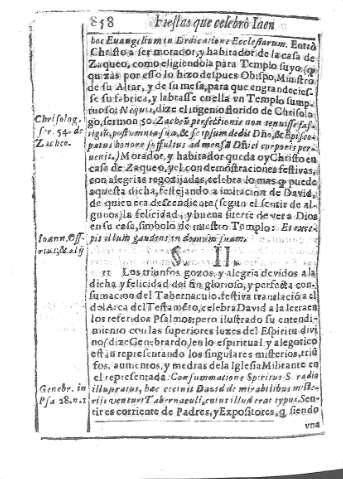 858 Fiestas que celebrò Iaen
hoc Euangelium in Dedicatione Ecclesiarum. Entrò
Christo a ser morador, y habitador de la casa de
Zaqueo, como eligiendola para Templo suyo, q̃
quizàs por esso lo hizo despues Obispo, Ministro
de su Altar, y de su mesa, para que engrandecies-
se su fabrica, y labrasse en ella vn Templo sump-
tuoso: Neque, dize el ingenio florido de Chrisolo-
Chrisolog. go, sermon 50. Zachæi profectionis non tenuisse fas-
ser. 54. de tigia, post omnia sua, & se ipsum dedit Deo, & Episco-
Zacheo. patus honore suffultus ad mensã Diuini corporis per-
uenit.) Morador, y habitador queda oy Christo en
casa de Zaqueo, y el con demostraciones festivas,
con alegrias regozijadas, celebra lo mas q̃ puede
aquesta dicha, festejando a imitacion de David,
de quien era descendiente (segun el sentir de al-
gunos) la felicidad, y buena suerte de ver a Dios
en su casa, simbolo de nuestro Templo: Et exce-
Ioann. pit illum gaudens in domum suam.
§. II.
11 Los triunfos, gozos, y alegria devidos a la
dicha, y felicidad del fin glorioso, y perfecta con-
sumacion del Tabernaculo, festiva translacion a el
del Arca del Testamẽto, celebra David a la letra en
los referidos Psalmos; pero ilustrado su entendi-
miento con las superiores luzes del Espiritu divi-
no (dize Genebrardo) en lo espiritual, y alegorico
està representando los singulares misterios, triũ-
fos, aumentos, y medras de la Iglesia Militante en
el representada: Consummatione Spiritus S. radio
Genebr. in illustratus, hæc cecinit David de mirabilibus miste-
Psa 28. n. 1 rijs venturi Tabernaculi, cuius illud erat typus. Sen-
tires corriente de Padres, y Expositores, q̃ siendo
vna